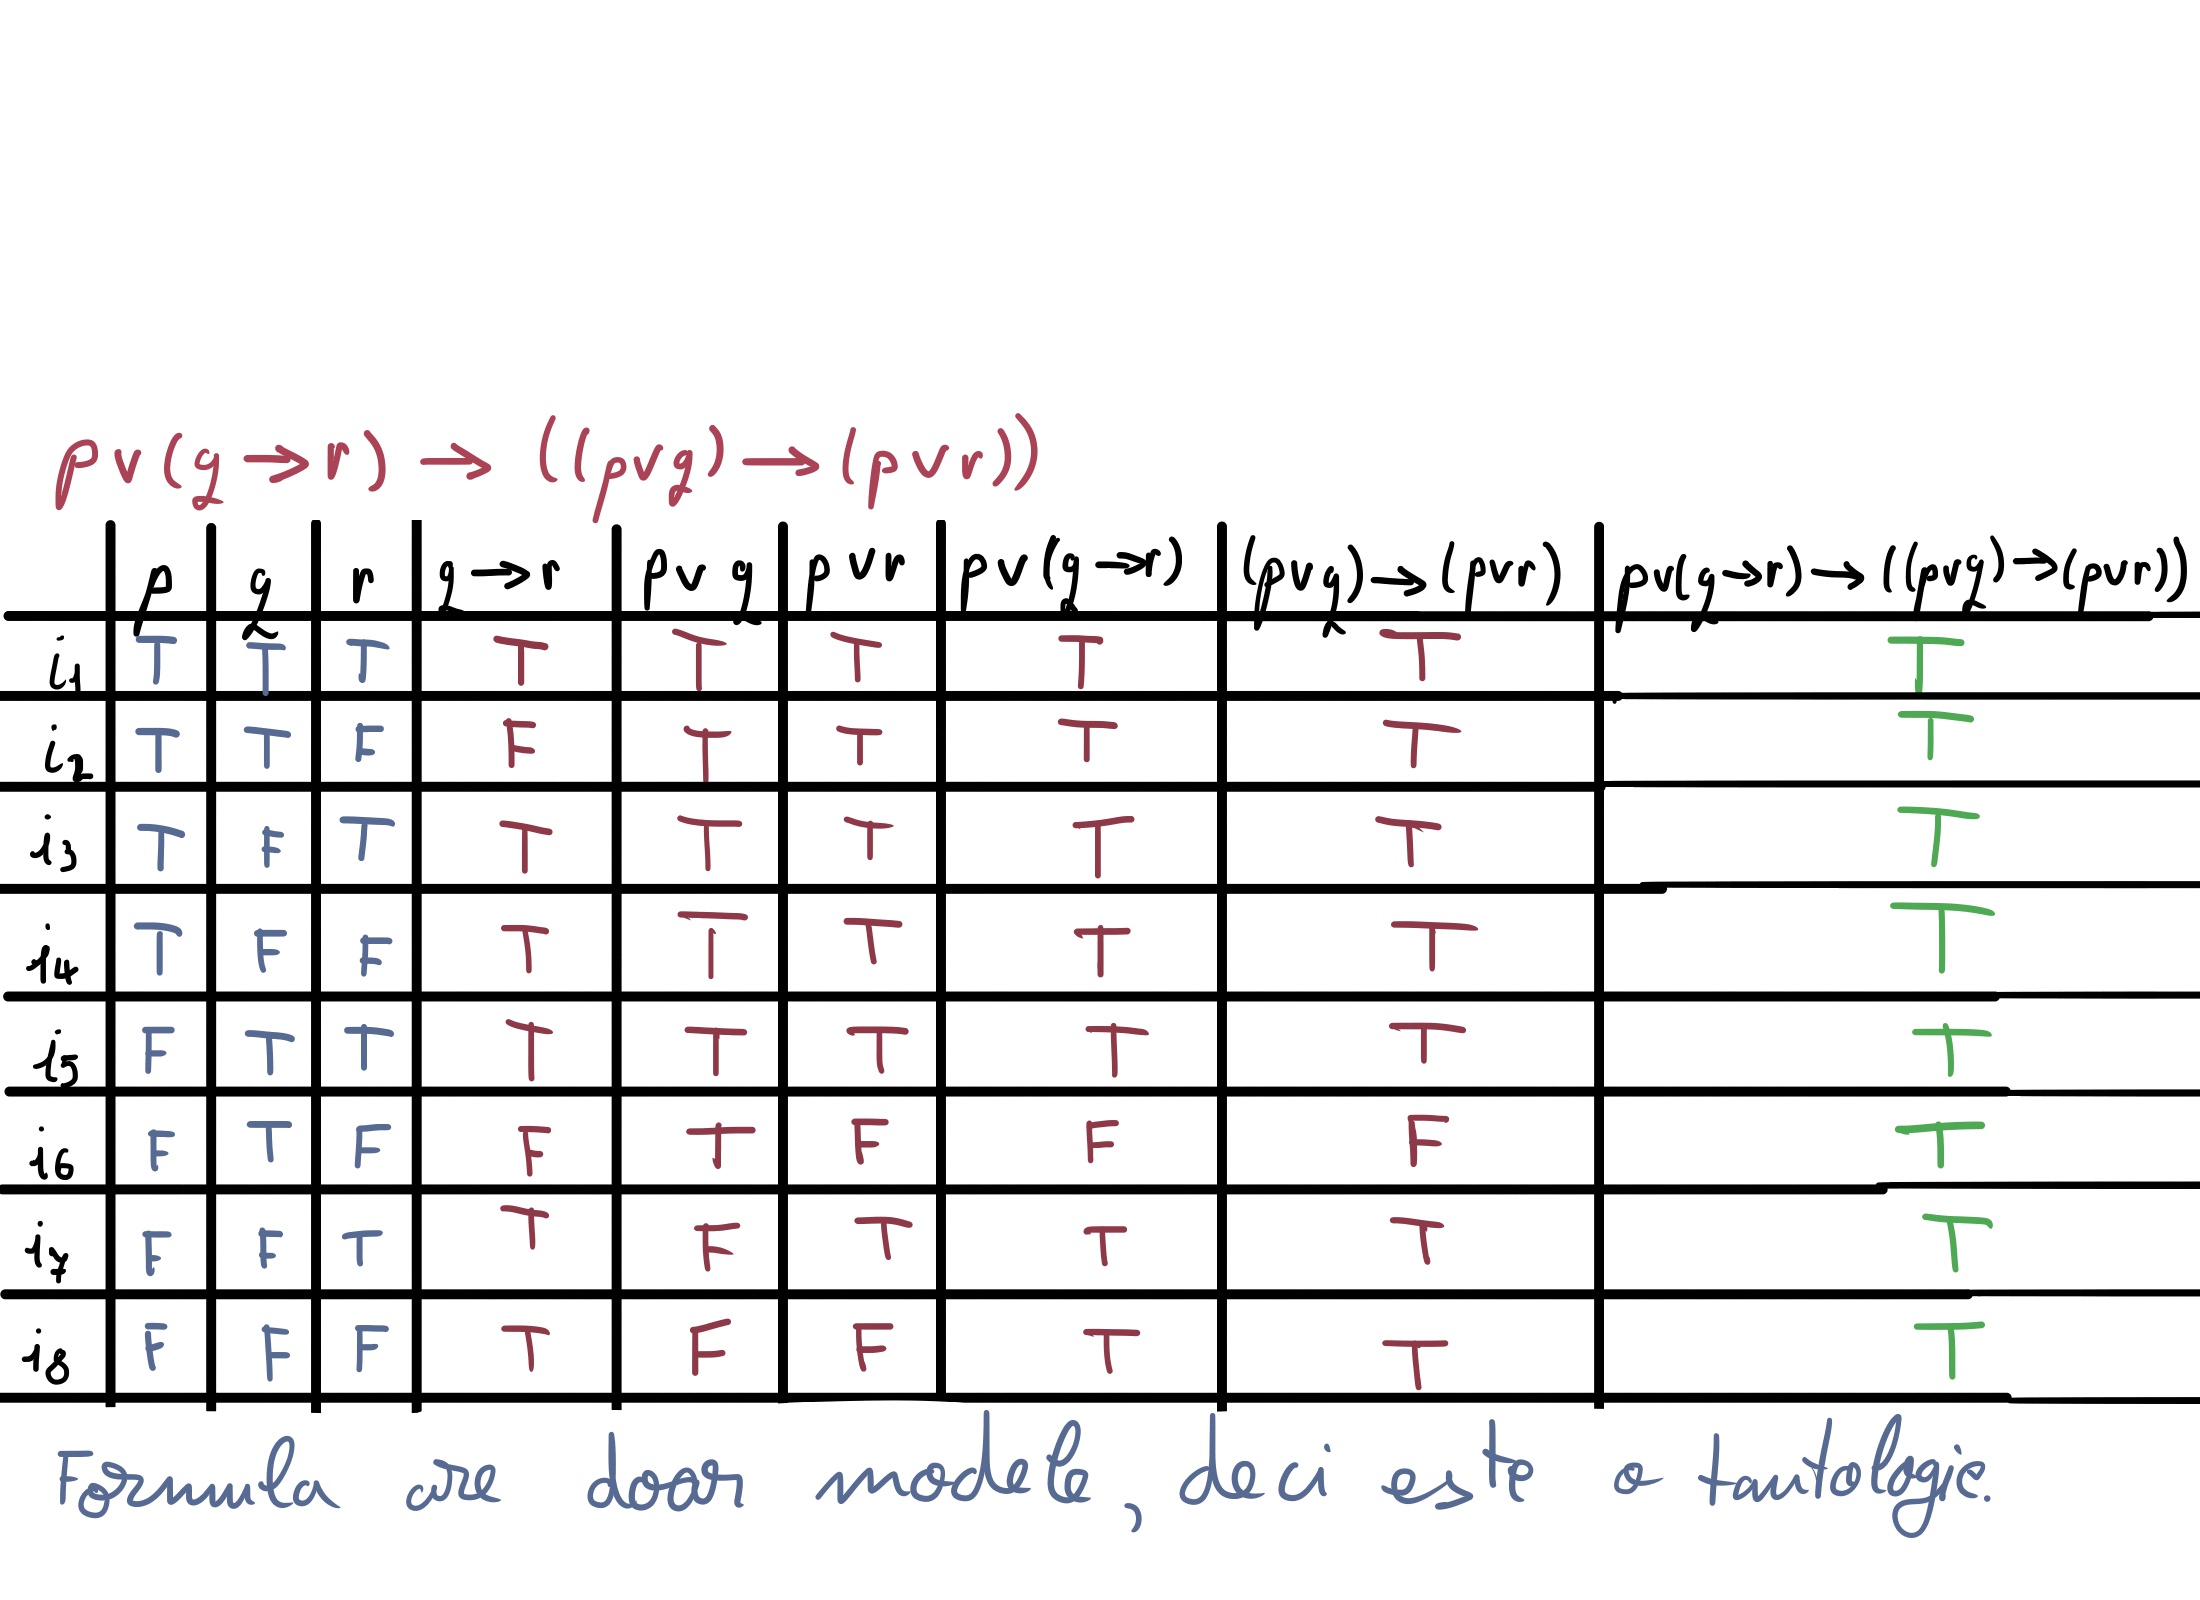 p ∨ (q → r) → ((p ∨ q) → (p ∨ r))
p q r q → r p ∨ q p ∨ r p ∨ (q → r) (p ∨ q) → (p ∨ r) p ∨ (q → r) → ((p ∨ q) → (p ∨ r))
i1 T T T T T T T T T
i2 T T F F T T T T T
i3 T F T T T T T T T
i4 T F F T T T T T T
i5 F T T T T T T T T
i6 F T F F T F F F T
i7 F F T T F T T T T
i8 F F F T F F T T T
Formula are doar modele, deci este o tautologie.